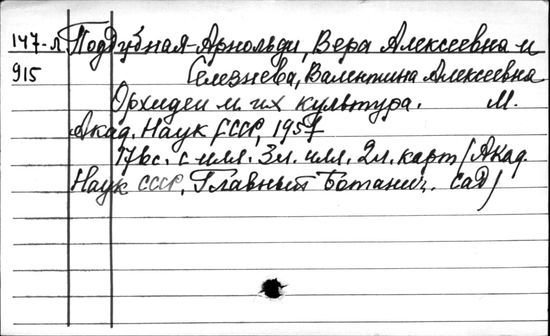 147-л Поддубная-Арнольди, Вера Алексеевна и
915 Селезнева, Валентина Алексеевна
Орхидеи и их культура. М.
Акад. Наук СССР, 1957
176с. с илл. 3л. илл. 2л. карт (Акад.
Наук СССР, Главный Ботанич. сад)